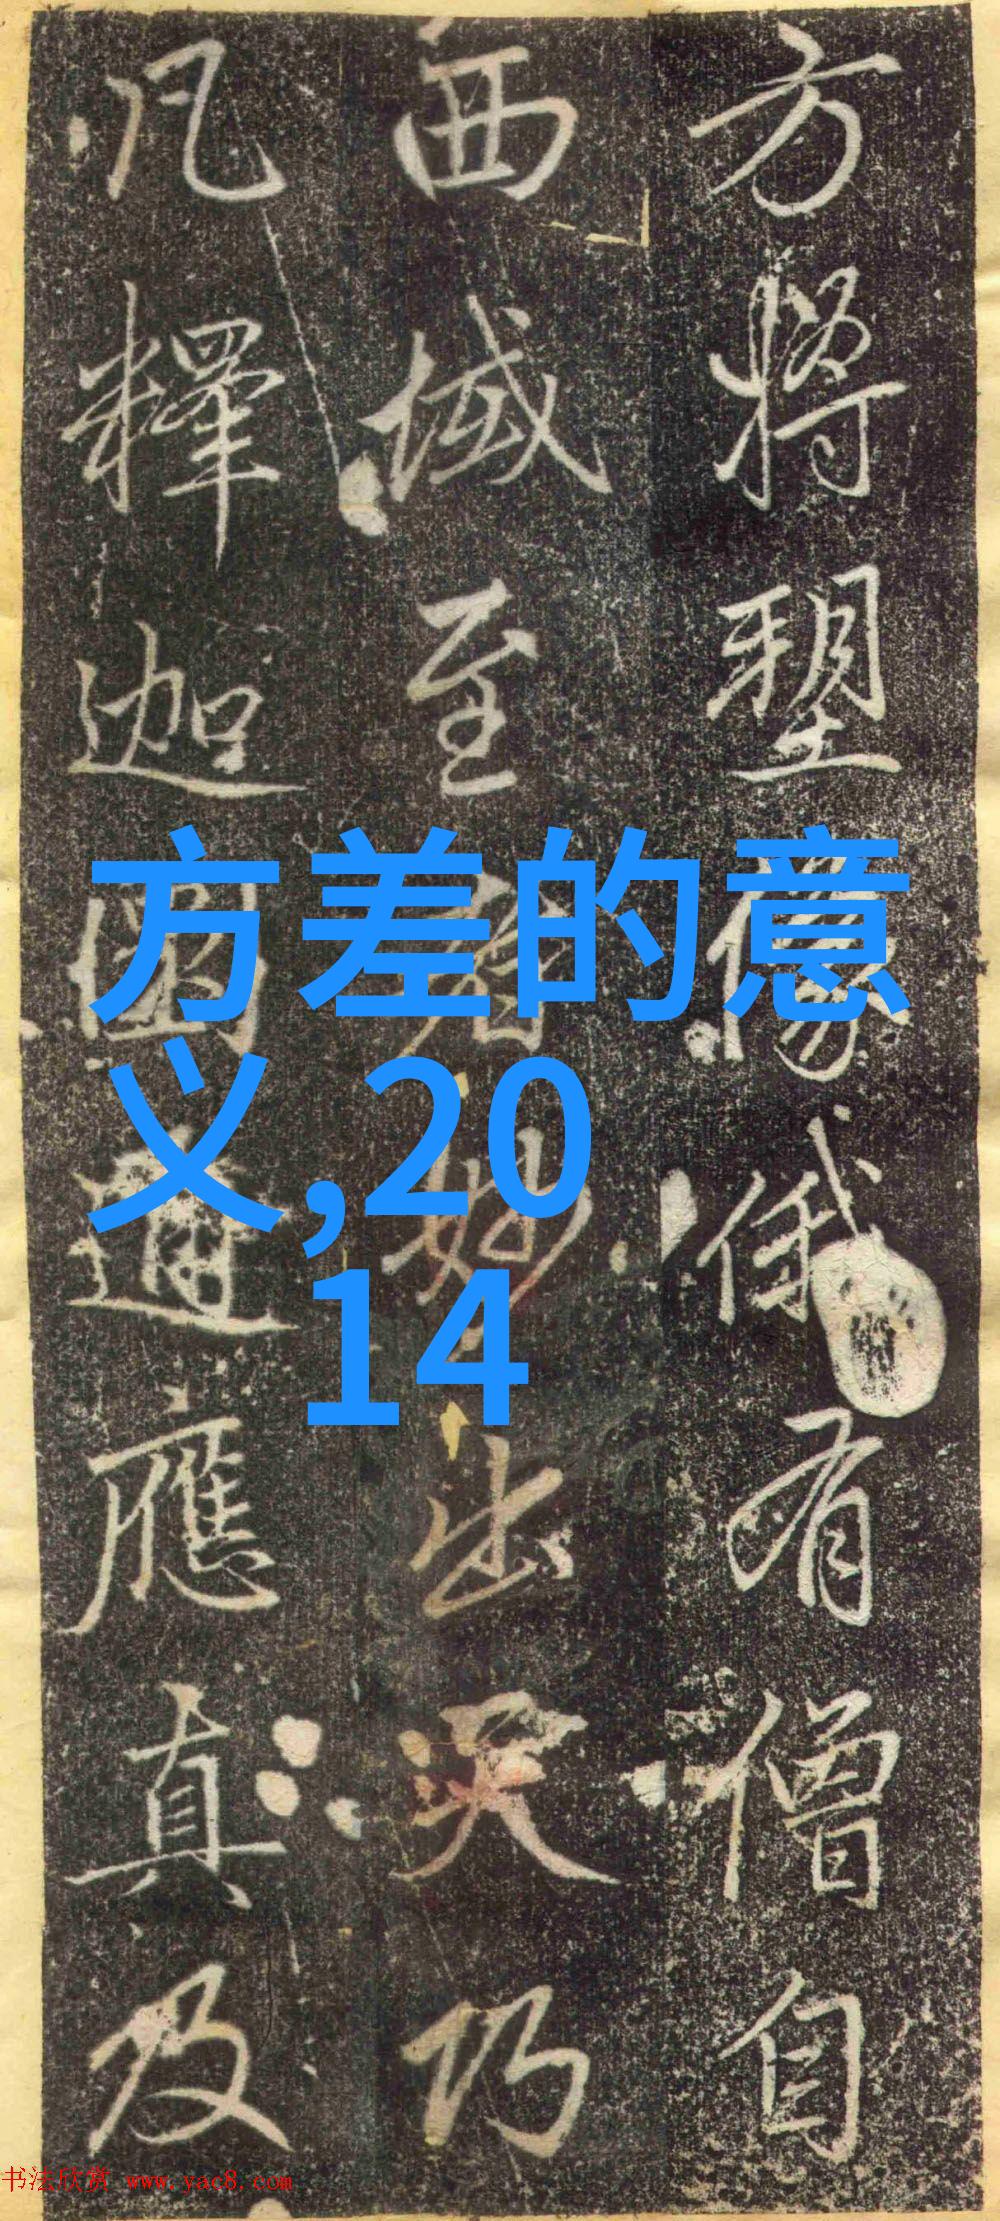 方將塑像俄有僧自
西域至者妙出天巧
凡釋迦圓通應真及
方差的意
义,20
14
书法欣赏 www.yac8.com